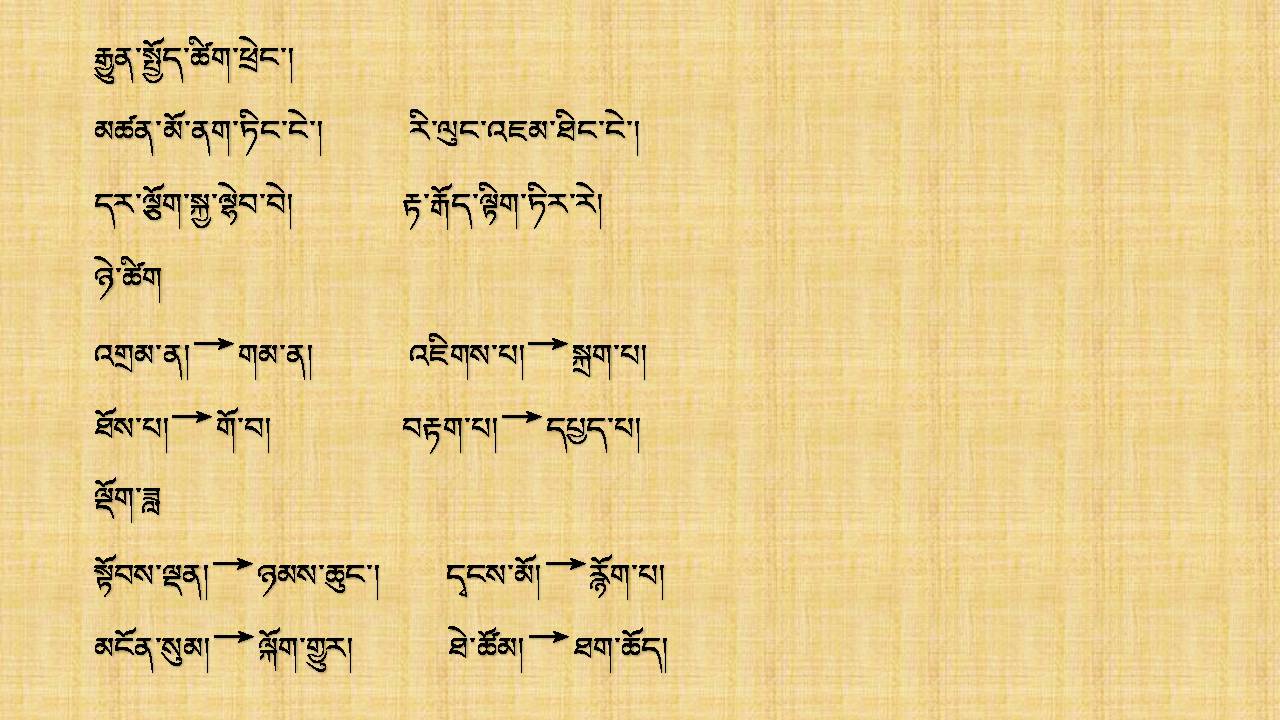 རྒྱུན་སྤྱོད་ཚིག་ཕྲེང་།
མཚན་མོ་ནག་ཏིང་ངེ་། རི་ལུང་འཇམ་ཐིང་ངེ་།
དར་ལྕོག་སྐྱ་ལྷེབ་བེ། རྟ་རྒོད་ལྟིག་ཏིར་རེ།
ཉེ་ཚིག
འགྲམ་ན།→གམ་ན། འཇིགས་པ།→སྐྲག་པ།
ཐོས་པ།→གོ་བ། བརྟག་པ།→དཔྱད་པ།
ལྡོག་ཟླ
སྟོབས་ལྡན།→ཉམས་ཆུང་། དྭངས་མོ།→རྙོག་པ།
མངོན་སུམ།→ལྐོག་གྱུར། ཐེ་ཚོམ།→ཐག་ཆོད།